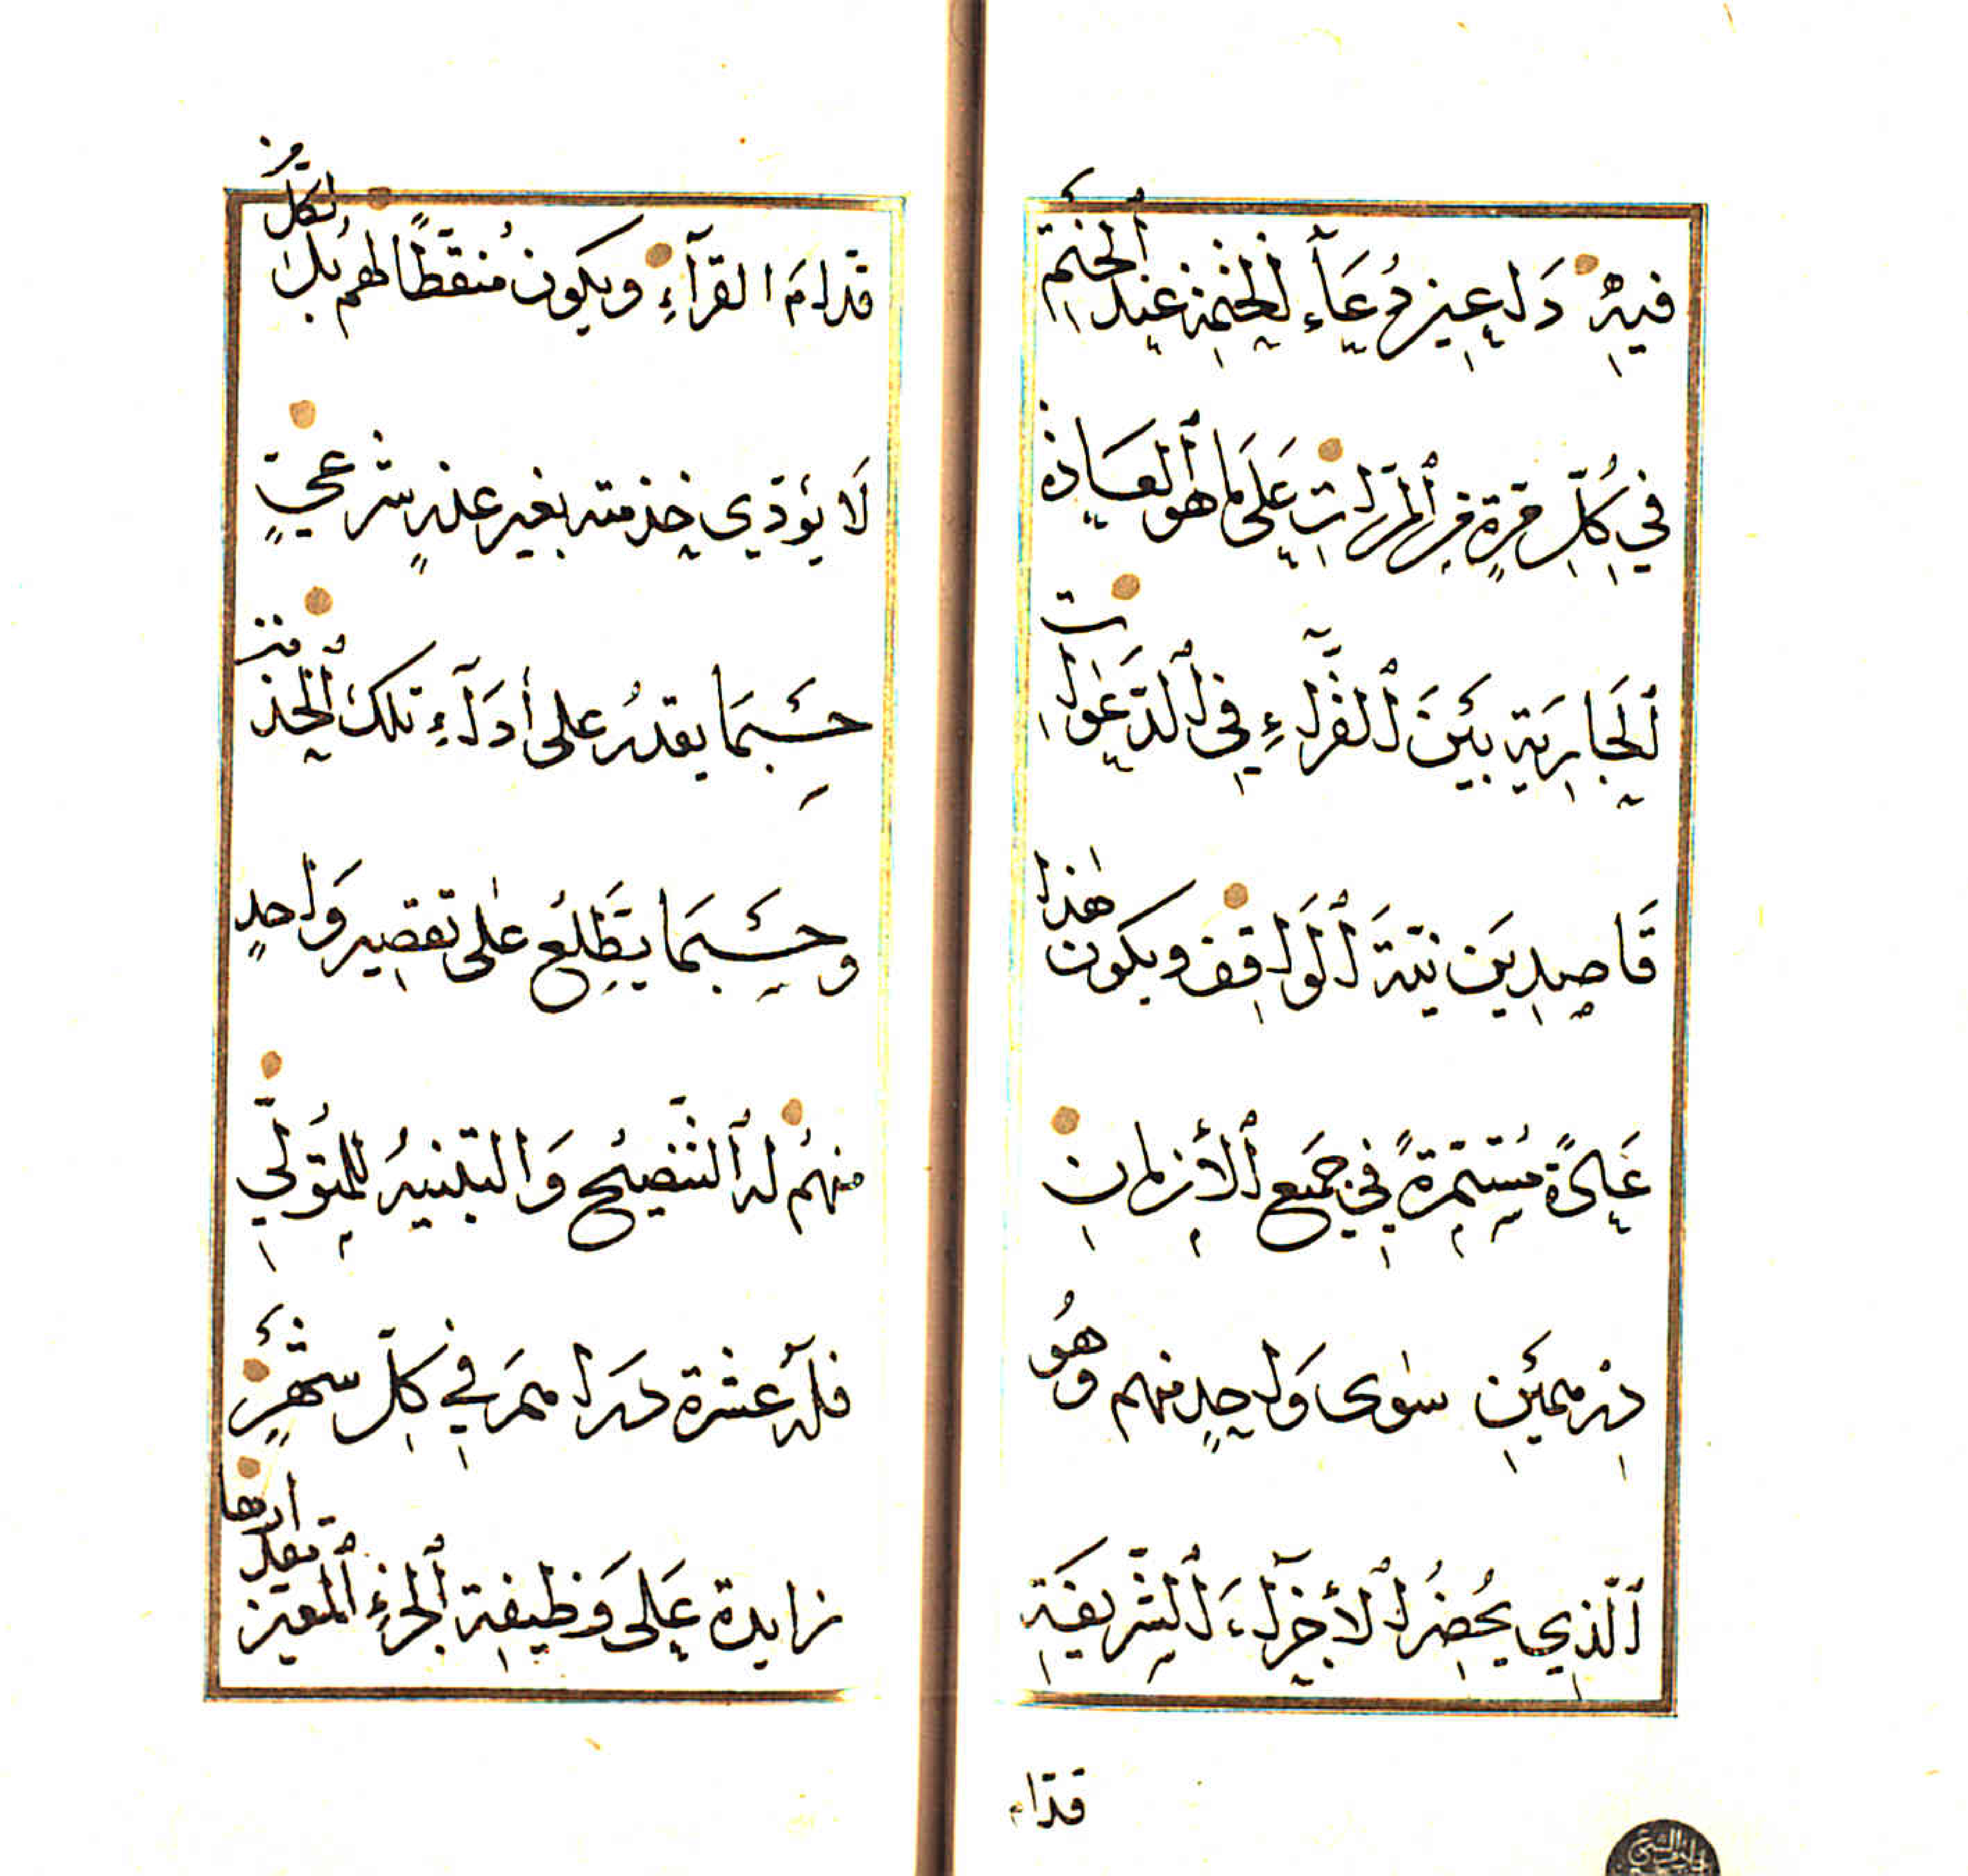 فِيهِ دَاعِينَ دُعَاءَ الْخَتْمَةِ عِنْدَ الْخَتْمِ
فِي كُلِّ مَرَّةٍ مِنَ الْمَرَّاتِ عَلَى مَا هُوَ الْعَادَةُ
الْجَارِيَةُ بَيْنَ الْقُرَّاءِ فِي الدَّعَوَاتِ
قَاصِدِينَ نِيَّةَ الْوَاقِفِ وَيَكُونُ هٰذَا
عَادَةً مُسْتَمِرَّةً فِي جَمِيعِ الْأَزْمَانِ
دِرْهَمَيْنِ سِوٰى وَاحِدٍ مِنْهُمْ وَهُوَ
الَّذِي يُحْضِرُ الْأَجْزَاءَ الشَّرِيفَةِ
قدّام
قدّامَ القرّآءِ ويكون مُنقّطًا لهم بُدَل لكلّ من
لَا يُؤدّي خِدْمته بغير عذرٍ شرعيٍّ
حَسْبَمَا يقدرُ على أدَآءِ تلك الْخِدْمة
وحَسْبَمَا يَطَّلِعُ عَلٰى تقصِير وَاحدٍ
منهُم له النُّصْحُ وَالتنبيهُ لِلمُتَوَلِّي
فلهُ عشرة دراهمَ فِي كلِّ شَهْرٍ
زايدة عَلَى وَظِيفةِ الْجُزْءِ الْمعيّن مقدارها